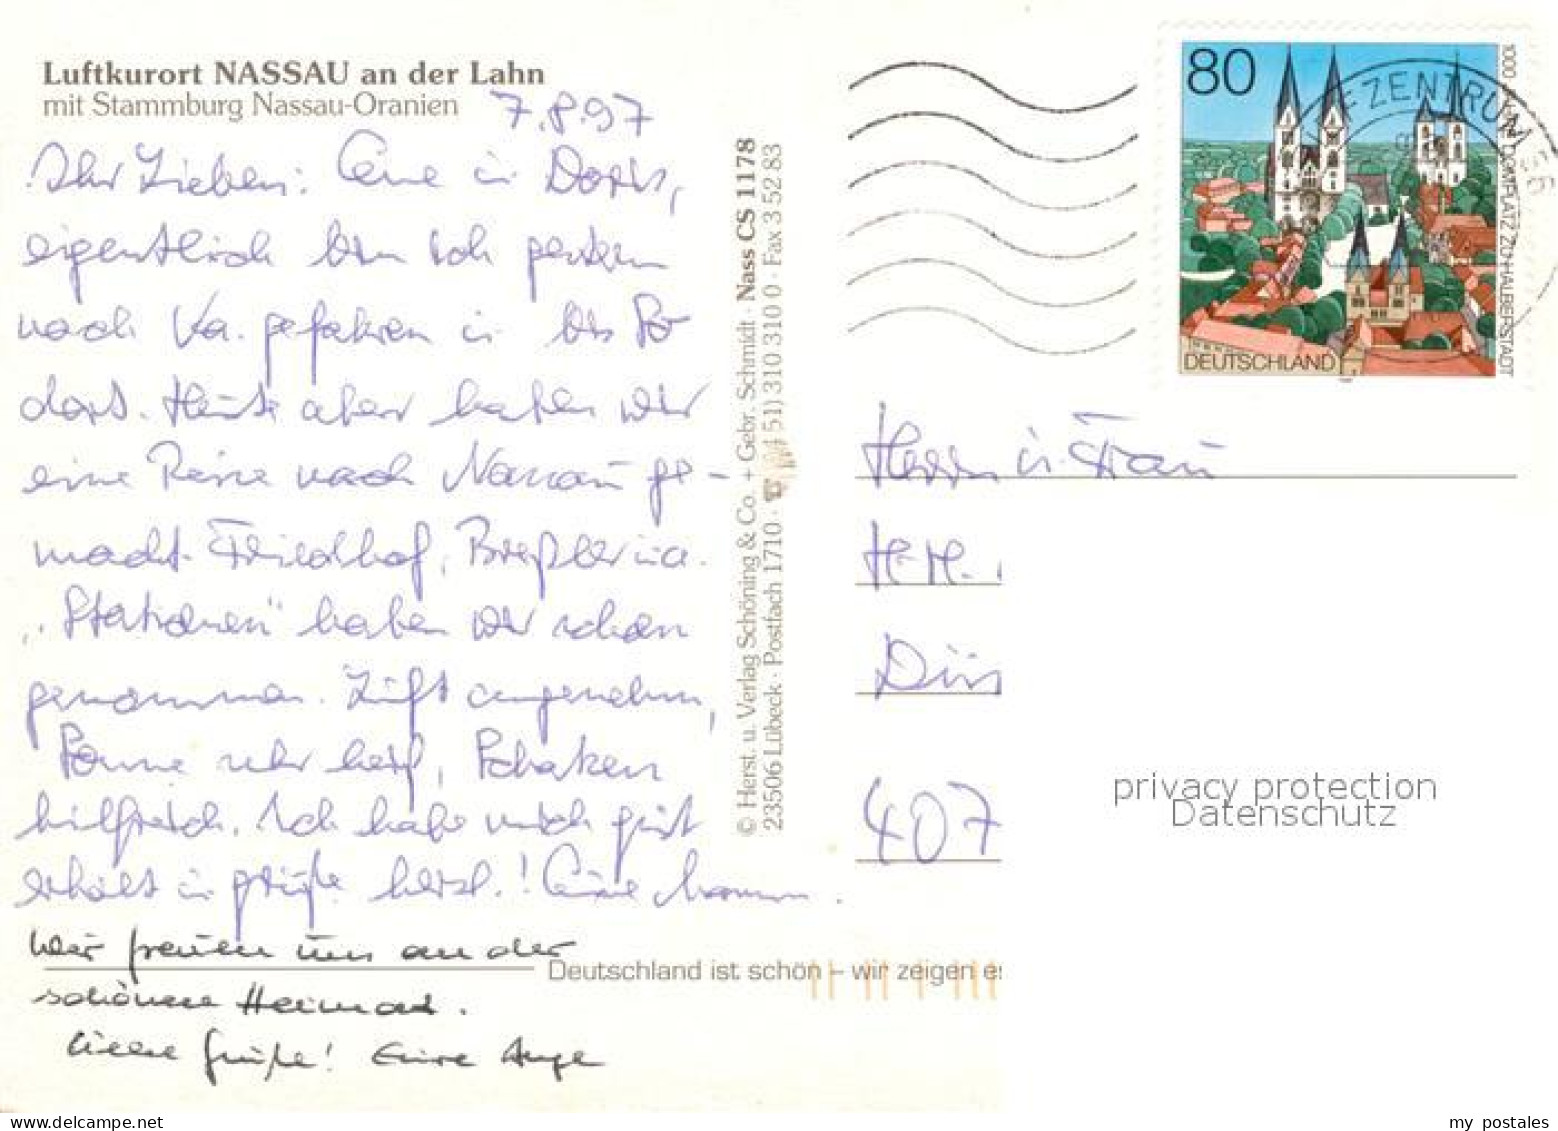 Luftkurort NASSAU an der Lahn
mit Stammburg Nassau-Oranien
7.8.97
Ihr Lieben:
eigentlich bin ich gestern
nach Ka. gefahren u. bis
dort. Heute aber haben wir
eine Reise nach Nassau ge-
macht. Friedhof,
"Stationen" haben wir schon
genommen. Luft angenehm,
Sonne sehr heiß, Schatten
hilfreich. Ich habe mich gut
erholt u. grüße herzl.! Eure
Wir freuen uns an der
schönen Heimat.
Liebe Grüße! Eure
© Herst. u. Verlag Schöning & Co. + Gebr. Schmidt · Nass CS 1178
23506 Lübeck · Postfach 1710 · 51) 310 310 0 · Fax 3 52 83
Deutschland ist schön – wir zeigen es
80
DEUTSCHLAND
1000 DOMPLATZ ZU HALBERSTADT
ZENTRUM
Herrn u. Frau
H.-H.
407
privacy protection
Datenschutz
my postales